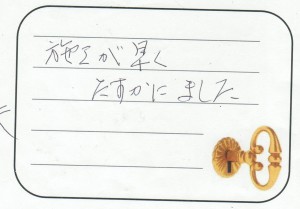 施工が早く
たすかにました